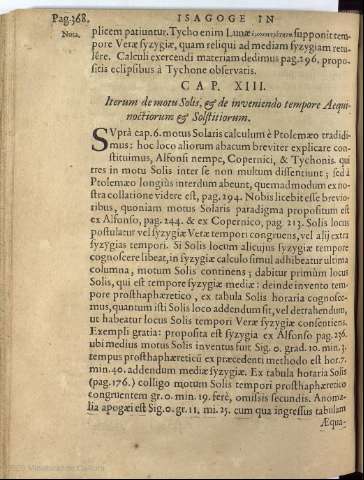 Pag. 368. ISAGOGE IN
Nota. plicem patiuntur. Tycho enim Lunæ supponit tem-
pore Veræ syzygiæ, quam reliqui ad mediam syzygiam retu-
lêre. Calculi exercendi materiam dedimus pag. 296, propo-
sitis eclipsibus à Tychone observatis.
CAP. XIII.
Iterum de motu Solis, & de inveniendo tempore Aequi-
noctiorum & Solstitiorum.
SVprà cap. 6. motus Solaris calculum è Ptolemæo tradidi-
mus: hoc loco aliorum abacum breviter explicare con-
stituimus, Alfonsi nempe, Copernici, & Tychonis. qui
tres in motu Solis inter se non multum dissentiunt; sed à
Ptolemæo longiùs interdum abeunt, quemadmodum ex no-
stra collatione videre est, pag. 294. Nobis licebit esse brevio-
ribus, quoniam motus Solaris paradigma propositum est
ex Alfonso, pag. 244. & ex Copernico, pag. 213. Solis locus
postulatur vel syzygiæ Veræ tempori congruens, vel alij extra
syzygias tempori. Si Solis locum alicujus syzygiæ tempore
cognoscere libeat, in syzygiæ calculo simul adhibeatur ultima
columna, motum Solis continens; dabitur primùm locus
Solis, qui est tempore syzygiæ mediæ: deinde invento tem-
pore prosthaphæretico, ex tabula Solis horaria cognosce-
mus, quantum isti Solis loco addendum sit, vel detrahendum,
ut habeatur locus Solis tempori Veræ syzygiæ consentiens.
Exempli gratia: proposita est syzygia ex Alfonso pag. 236.
ubi medius motus Solis inventus fuit Sig. 0. grad. 10. min. 3.
tempus prosthaphæreticũ ex præcedenti methodo est hor. 7.
min. 40. addendum mediæ syzygiæ. Ex tabula horaria Solis
(pag. 176.) colligo motum Solis tempori prosthaphæretico
congruentem gr. 0. min. 19. ferè, omissis secundis. Anoma-
lia apogæi est Sig. 0. gr. 11. mi. 25. cum qua ingressus tabulam
Æqua-